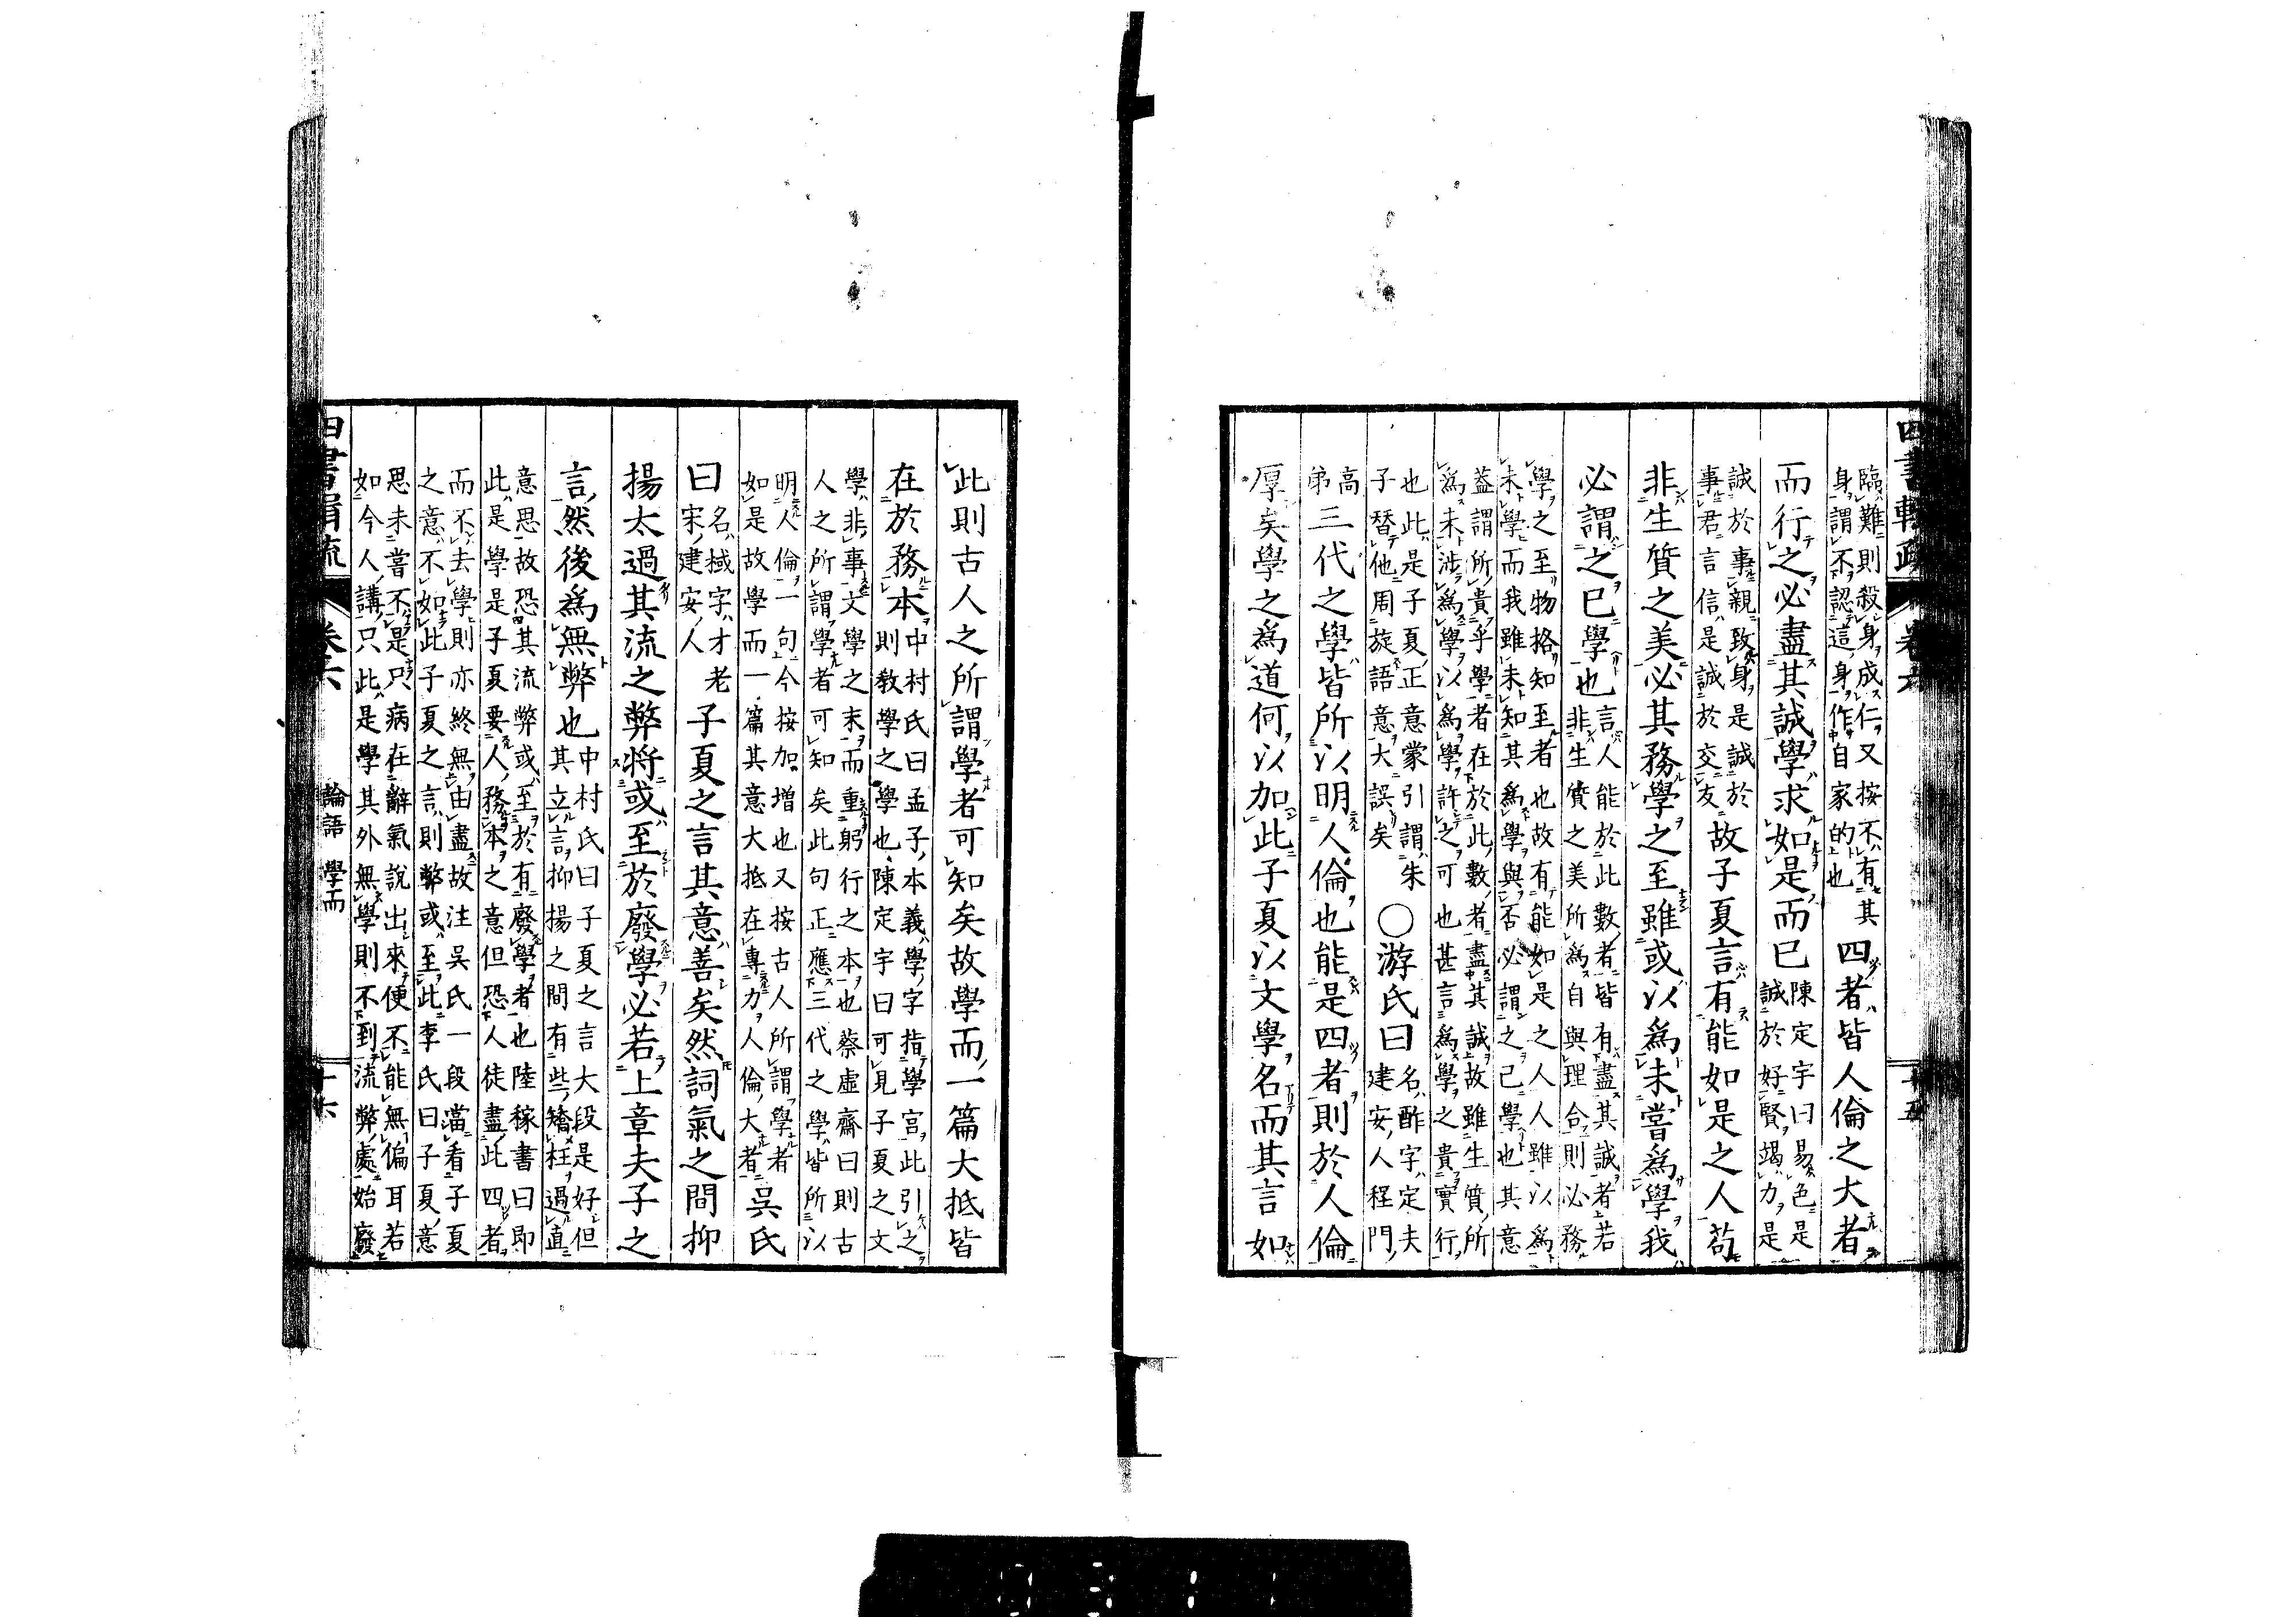 四書輯疏 卷六 十五
臨難則殺身成仁又按不有其
身謂不認這身作自家的也
四者皆人倫之大者
而行之必盡其誠學求如是而已
陳定宇曰易色是
誠於好賢竭力是
誠於事親致身是誠於
事君言信是誠於交友
故子夏言有能如是之人苟
非生質之美必其務學之至雖或以爲未嘗爲學我
必謂之已學也
言人能於此數者皆有盡其誠者若
非生質之美所爲自與理合則必務
學之至物格知至者也故有能如是之人人雖以爲
未學而我雖未知其爲學與否必謂之已學也其意
蓋謂所貴乎學者在於此數者盡其誠故雖生質所
爲未涉爲學以爲學許之可也甚言爲學之貴實行
也此是子夏正意蒙引謂朱
子替他周旋語意大誤矣
○游氏曰
名酢字定夫
建安人程門
高
弟
三代之學皆所以明人倫也能是四者則於人倫
厚矣學之爲道何以加此子夏以文學名而其言如
此則古人之所謂學者可知矣故學而一篇大抵皆
在於務本
中村氏曰孟子本義學字指學宮此引之
則教學之學也陳定宇曰可見子夏之文
學非事文學之末而重躬行之本也蔡虛齋曰則古
人之所謂學者可知矣此句正應三代之學皆所以
明人倫一句今按加增也又按古人所謂學者
如是故學而一篇其意大抵在專力人倫大者
吳氏
曰
名棫字才老
宋建安人
子夏之言其意善矣然詞氣之間抑
揚太過其流之弊將或至於廢學必若上章夫子之
言然後爲無弊也
中村氏曰子夏之言大段是好但
其立言抑揚之間有些矯枉過直
意思故恐其流弊或至於有廢學者也陸稼書曰即
此是學是子夏要人務本之意但恐人徒盡此四者
而不去學則亦終無由盡故注吳氏一段當看子夏
之意不如此子夏之言則弊或至此李氏曰子夏意
思未嘗不是只病在辭氣說出來便不能無偏耳若
如今人講只此是學其外無學則不到流弊處始廢
四書輯疏 卷六 論語 學而 十六